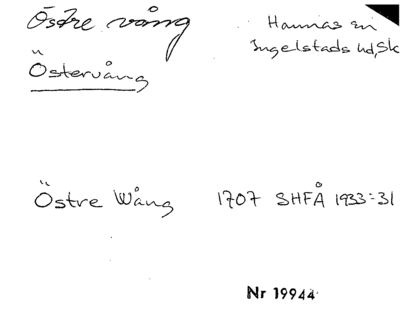 Östre vång
Hannas sn
Ingelstads hd, Sk
Östervång
Östre Wång 1707 SHFÅ 1933:31
Nr 19944